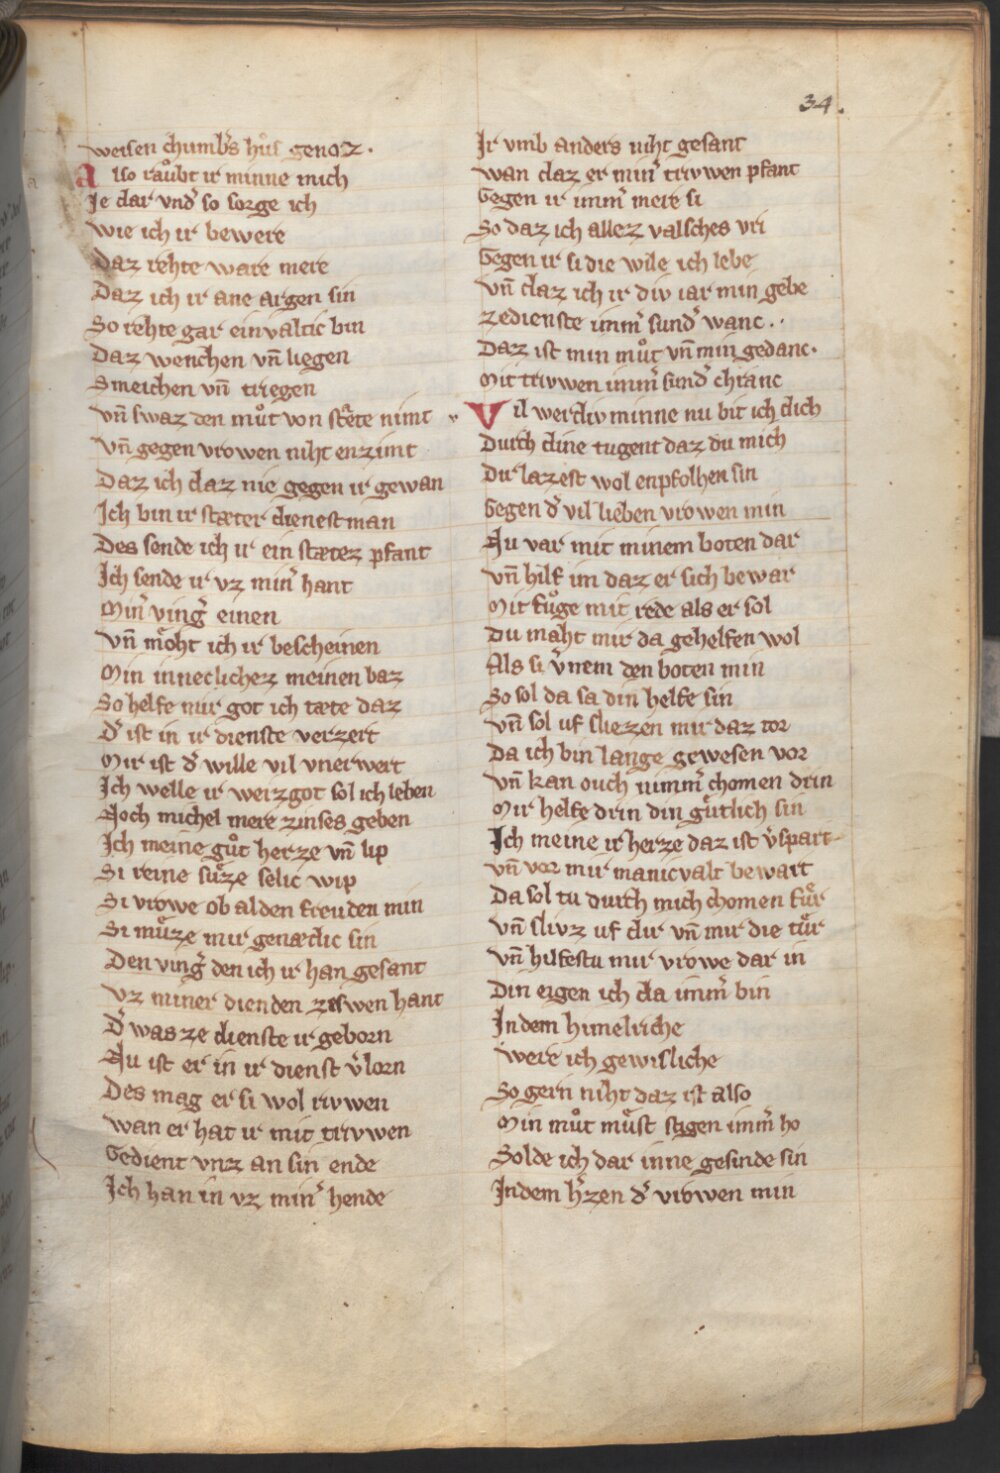 34.
weisen chumb̕s hůs genoz.
Also raůbt ir minne mich
Je dar vnd̕ so sorge ich
wie ich ir bewere
Daz rehte ware mere
Daz ich ir ane argen sin
So rehte gar einvaltic bin
Daz wenchen vn̄ liegen
Smeichen vn̄ triegen
vn̄ swaz den můt von stæte nimt
vn̄ gegen vrowen niht enzimt
Daz ich daz nie gegen ir gewan
Ich bin ir stæter dienestman
Des sende ich ir ein stætez pfant
Ich sende ir vz min̕ hant
Min̕ ving̕ einen
vn̄ moͤht ich ir bescheinen
Min inneclichez meinen baz
So helfe mir got ich tæte daz
d̕ ist in ir dienste verzert
Mir ist d̕ wille vil vnerwert
Ich welle ir weizgot sol ich leben
Noch michel mere zinses geben
Ich meine gůt herze vn̄ lip
Si reine suͤze selic wip
Si vrowe ob al den freuden min
Si muͤze mir genædic sin
Den ving̕ den ich ir han gesant
vz miner dienden zeswen hant
d̕ was ze dienste ir geborn
Nu ist er in ir dienst v̕lorn
Des mag er si wol rivwen
wan er hat ir mit trivwen
Gedient vnz an sin ende
Ich han in vz min̕ hende
Ir vmb anders niht gesant
wan daz er min̕ trivwen pfant
Gegen ir imm̕ mere si
So daz ich allez valsches vri
Gegen ir si die wile ich lebe
vn̄ daz ich ir div iar min gebe
zedienste imm̕ sund̕ wanc..
Daz ist min můt vn̄ min gedanc.
Mit trivwen imm̕ sund̕ chranc
Vil werdiv minne nu bit ich dich
Durch dine tugent daz du mich
Du lazest wol enpfolhen sin
Gegen d̕ vil lieben vrowen min
Nu var mit minem boten dar
vn̄ hilf im daz er sich bewar
Mit fůge mit rede als er sol
Du maht mir da gehelfen wol
Als si v̕nem den boten min
So sol da sa din helfe sin
vn̄ sol uf sliezen mir daz tor
Da ich bin lange gewesen vor
vn̄ kan ouch nimm̕ chomen drin
Mir helfe drin din guͤtlich sin
Ich meine ir herze daz ist v̕spart
vn̄ vor mir manicvalt bewart
Da sol tu durch mich chomen fuͤr
vn̄ slivz uf dir vn̄ mir die tuͤr
vn̄ hilfestu mir vrowe dar in
Din eigen ich da imm̕ bin
Indem himelriche
were ich gewisliche
So gern niht daz ist also
Min můt muͤst stigen imm̕ ho
Solde ich dar inne gesinde sin
Indem h̕zen d̕ vrowen min